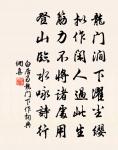 龍門澗下濯塵纓
擬作閑人過此生
筋力不將諸處用
登山臨水詠詩行
白居易龍門下作詞典
網集